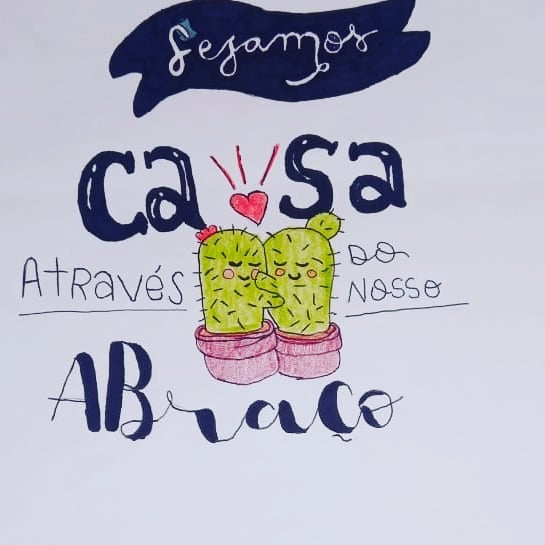 Sejamos
CASA
Através do
nosso
ABraço